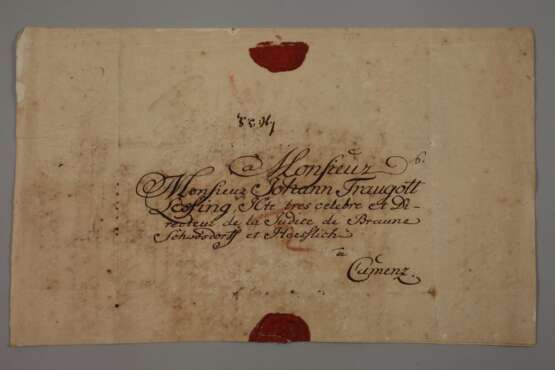 a Monsieur
Monsieur Johann Traugott
Lessing, Jcte tres celebre et Di-
recteur de la Judice de Braune
Schwosdorff et Haeslich
a
Camenz.